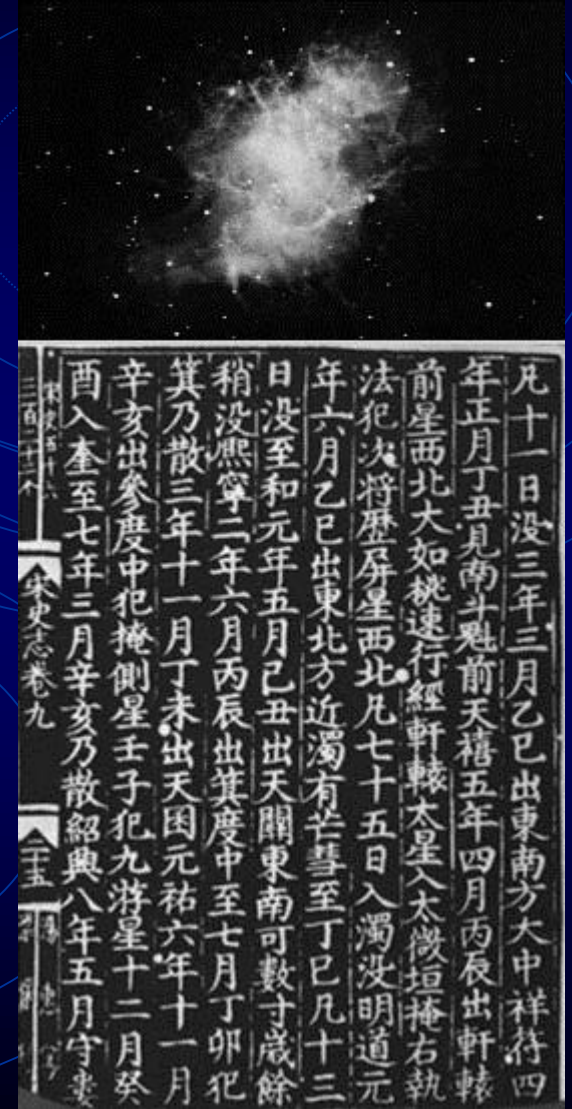 凡十一日没三年三月乙巳出東南方大中祥符四
年正月丁丑見南斗魁前天禧五年四月丙辰出軒轅
前星西北大如桃速行經軒轅太星入太微垣掩右執
法犯次將歷屏星西北凡七十五日入濁没明道元
年六月乙巳出東北方近濁有芒彗至丁巳凡十三
日没至和元年五月己丑出天關東南可數寸歲餘
稍没熈寧二年六月丙辰出箕度中至七月丁卯犯
箕乃散三年十一月丁未出天囷元祐六年十一月
辛亥出參度中犯掩側星壬子犯九游星十二月癸
酉入奎至七年三月辛亥乃散紹興八年五月守婁
宋史志卷九
二十五